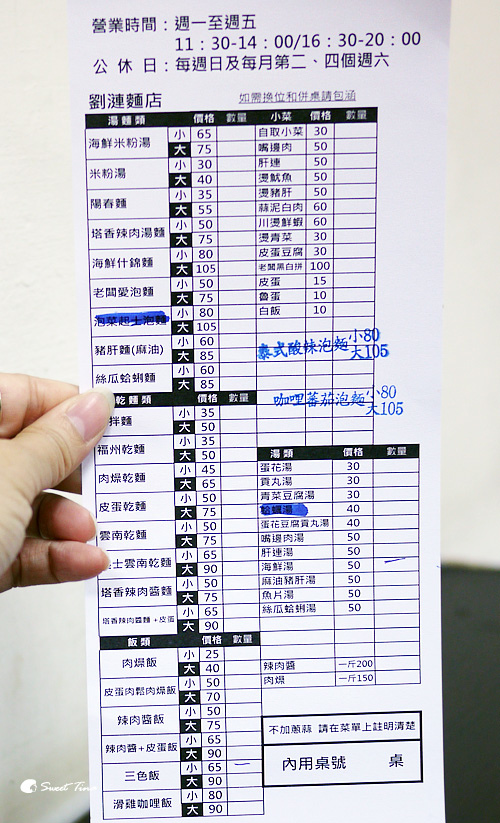 營業時間：週一至週五
11：30-14：00/16：30-20：00
公休日：每週日及每月第二、四個週六
劉漣麵店
如需換位和併桌請包涵
湯麵類 價格 數量
海鮮米粉湯 小 65
大 75
米粉湯 小 30
大 40
陽春麵 小 35
大 55
塔香辣肉湯麵 小 50
大 75
海鮮什錦麵 小 80
大 105
老闆愛泡麵 小 50
大 75
泡菜起士泡麵 小 80
大 105
豬肝麵(麻油) 小 60
大 85
絲瓜蛤蜊麵 小 60
大 85
乾麵類 價格 數量
拌麵 小 35
大 50
福州乾麵 小 35
大 50
肉燥乾麵 小 45
大 65
皮蛋乾麵 小 50
大 75
雲南乾麵 小 50
大 75
士雲南乾麵 小 65
大 90
塔香辣肉醬麵 小 50
大 75
塔香辣肉醬麵+皮蛋 小 65
大 90
飯類 價格 數量
肉燥飯 小 25
大 40
皮蛋肉鬆肉燥飯 小 50
大 70
辣肉醬飯 小 50
大 75
辣肉醬+皮蛋飯 小 65
大 90
三色飯 小 65 一
大 90
滑雞咖哩飯 小 80
大 90
小菜 價格 數量
自取小菜 30
嘴邊肉 50
肝連 50
燙魷魚 50
燙豬肝 50
蒜泥白肉 60
川燙鮮蝦 60
燙青菜 30
皮蛋豆腐 30
老闆黑白拼 100
皮蛋 15
魯蛋 10
白飯 10
泰式酸辣泡麵 小80
大105
咖哩蕃茄泡麵 小80
大105
湯類 價格 數量
蛋花湯 30
貢丸湯 30
青菜豆腐湯 30
蛤蠣湯 40
蛋花豆腐貢丸湯 40
嘴邊肉湯 50
肝連湯 50
海鮮湯 50 一
麻油豬肝湯 50
魚片湯 50
絲瓜蛤蜊湯 50
辣肉醬 一斤200
肉燥 一斤150
不加蔥蒜 請在菜單上註明清楚
內用桌號 桌
Sweet Time